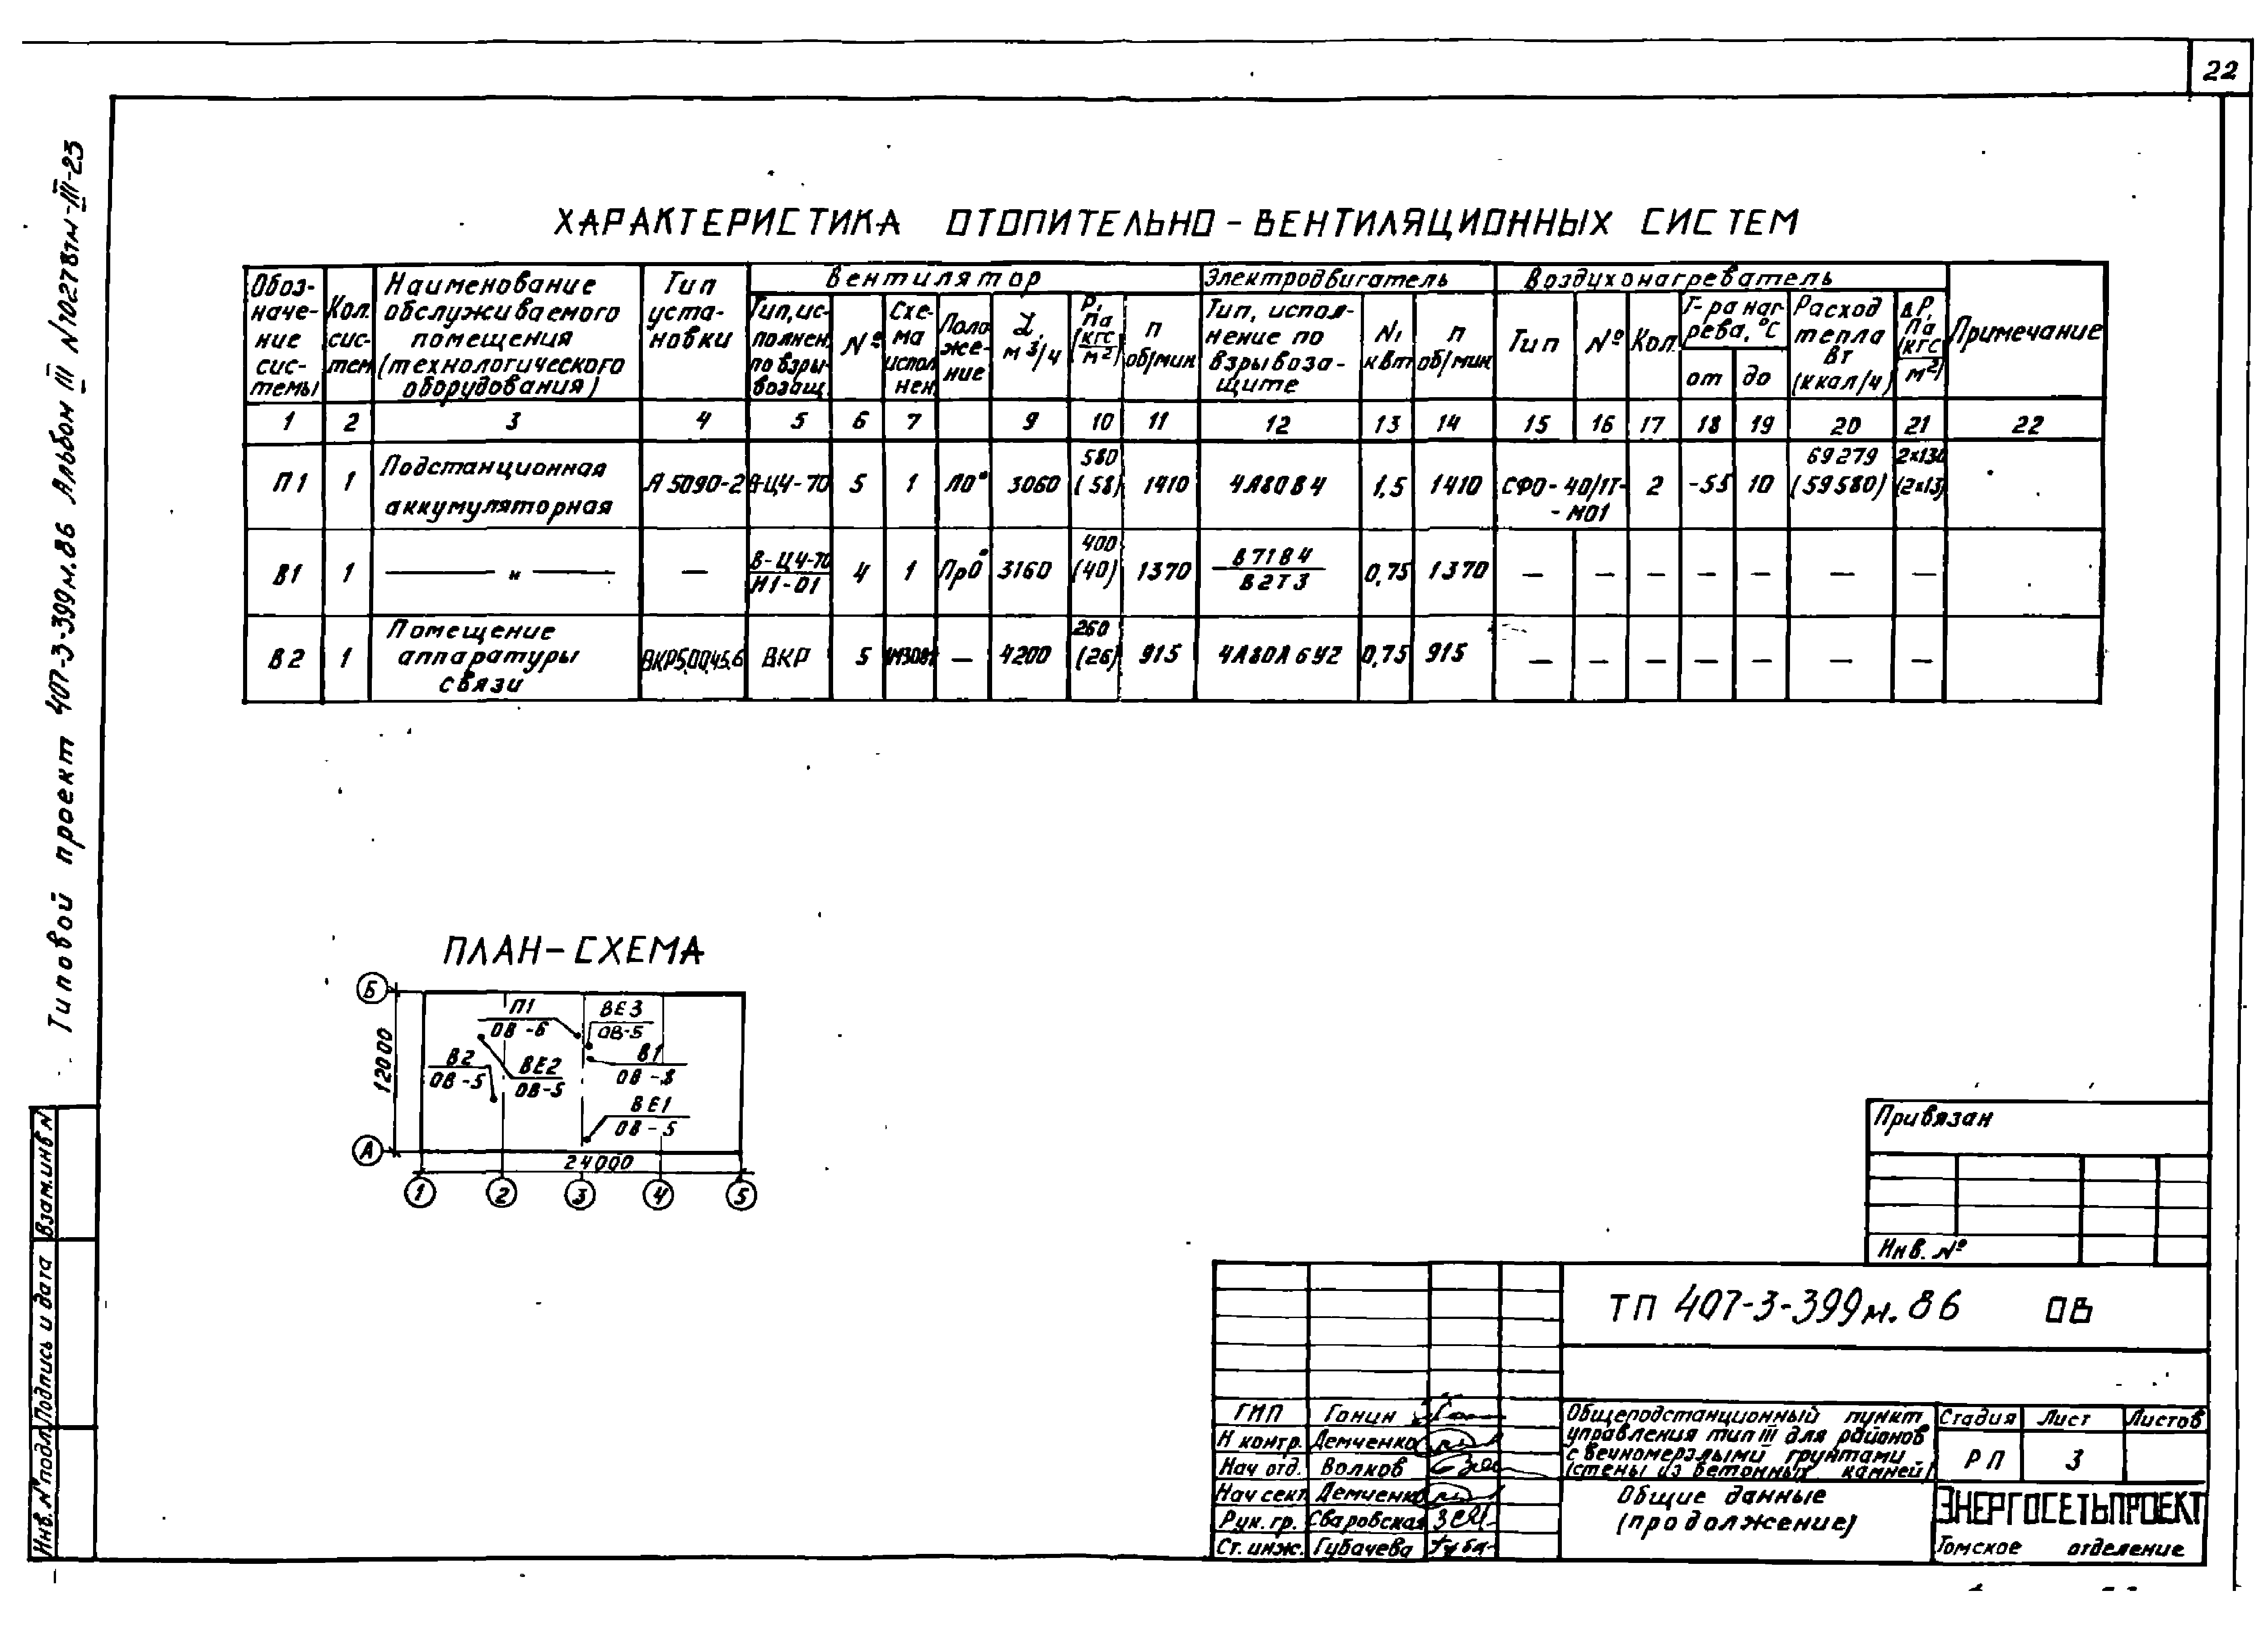 22
Типовой проект 407-3-399м.86 Альбом III N10278тм-III-23
ХАРАКТЕРИСТИКА ОТОПИТЕЛЬНО-ВЕНТИЛЯЦИОННЫХ СИСТЕМ
Обоз-
наче-
ние
сис-
темы
Кол.
сис-
тем
Наименование
обслуживаемого
помещения
(технологического
оборудования)
Тип
уста-
новки
Вентилятор
Тип, ис-
полнен.
по взры-
возащ.
№
Схе-
ма
испол
нен.
Поло
же-
ние
L,
м3/ч
Р,
Па
(кгс
м2)
n
об/мин
Электродвигатель
Тип, испол-
нение по
взрывоза-
щите
N,
кВт
n
об/мин
Воздухонагреватель
Тип
№
Кол.
Т-ра наг-
рева, °С
от до
Расход
тепла
Вт
(ккал/ч)
ΔР,
Па
(кгс
м2)
Примечание
1 2 3 4 5 6 7 9 10 11 12 13 14 15 16 17 18 19 20 21 22
П1 1 Подстанционная аккумуляторная А5090-2 В-Ц4-70 5 1 Л0° 3060 580 (58) 1410 4А80В4 1,5 1410 СФО-40/1Т--М01 2 -55 10 69279 (59580) 2×130 (2×13)
В1 1 — " — — В-Ц4-70 Н1-01 4 1 Пр0° 3160 400 (40) 1370 В71В4 В2Т3 0,75 1370 — — — — — — —
В2 1 Помещение аппаратуры связи ВКР5.00.45.6 ВКР 5 — 4200 260 (26) 915 4А80А6У2 0,75 915 — — — — — — —
ПЛАН-СХЕМА
Б
П1
ОВ-6
ВЕ3
ОВ-5
В2
ОВ-5
ВЕ2
ОВ-5
В1
ОВ-8
ВЕ1
ОВ-5
12000
А
24000
1 2 3 4 5
Привязан
Инв. №
ТП 407-3-399м.86 ОВ
ГИП Гонин
Н контр. Демченко
Нач отд. Волков
Нач сект. Демченко
Рук. гр. Сваровская
Ст. инж. Губачева
Общеподстанционный пункт
управления тип III для районов
с вечномерзлыми грунтами
(стены из бетонных камней)
Стадия Лист Листов
РП 3
Общие данные
(продолжение)
ЭНЕРГОСЕТЬПРОЕКТ
Томское отделение
Взам.инв №
Подпись и дата
Инв. № подл.